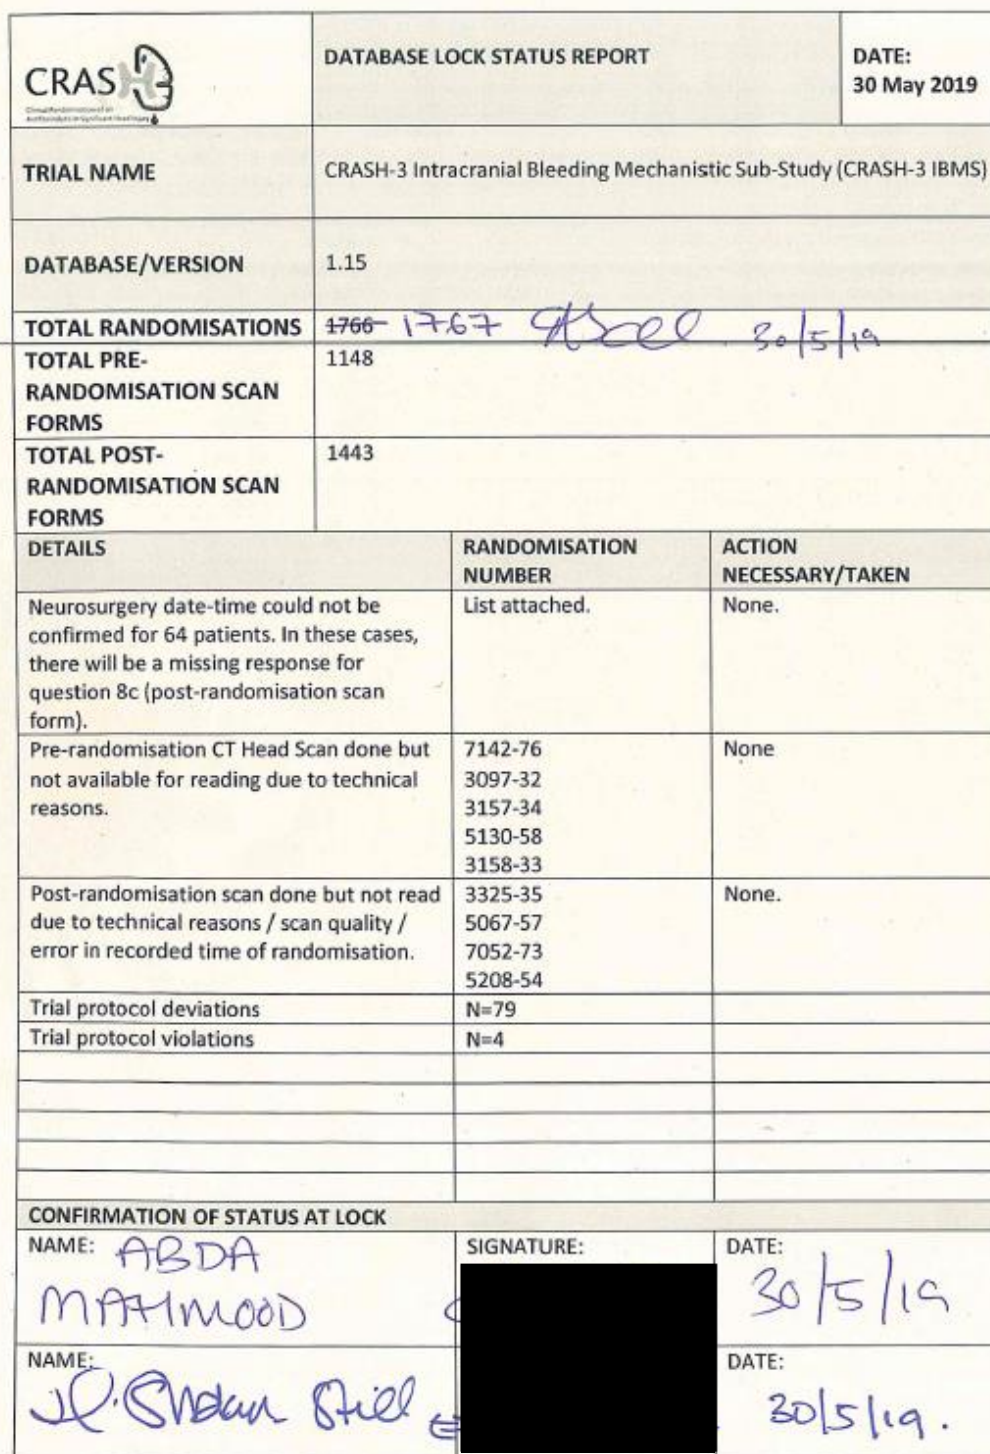 CRASH3
DATABASE LOCK STATUS REPORT
DATE:
30 May 2019
TRIAL NAME
CRASH-3 Intracranial Bleeding Mechanistic Sub-Study (CRASH-3 IBMS)
DATABASE/VERSION
1.15
TOTAL RANDOMISATIONS
1766 1767 30/5/19
TOTAL PRE-
RANDOMISATION SCAN
FORMS
1148
TOTAL POST-
RANDOMISATION SCAN
FORMS
1443
DETAILS
RANDOMISATION
NUMBER
ACTION
NECESSARY/TAKEN
Neurosurgery date-time could not be
confirmed for 64 patients. In these cases,
there will be a missing response for
question 8c (post-randomisation scan
form).
List attached.
None.
Pre-randomisation CT Head Scan done but
not available for reading due to technical
reasons.
7142-76
3097-32
3157-34
5130-58
3158-33
None
Post-randomisation scan done but not read
due to technical reasons / scan quality /
error in recorded time of randomisation.
3325-35
5067-57
7052-73
5208-54
None.
Trial protocol deviations
N=79
Trial protocol violations
N=4
CONFIRMATION OF STATUS AT LOCK
NAME: ABDA
MAHMOOD
SIGNATURE:
DATE:
30/5/19
NAME:
DATE:
30/5/19.